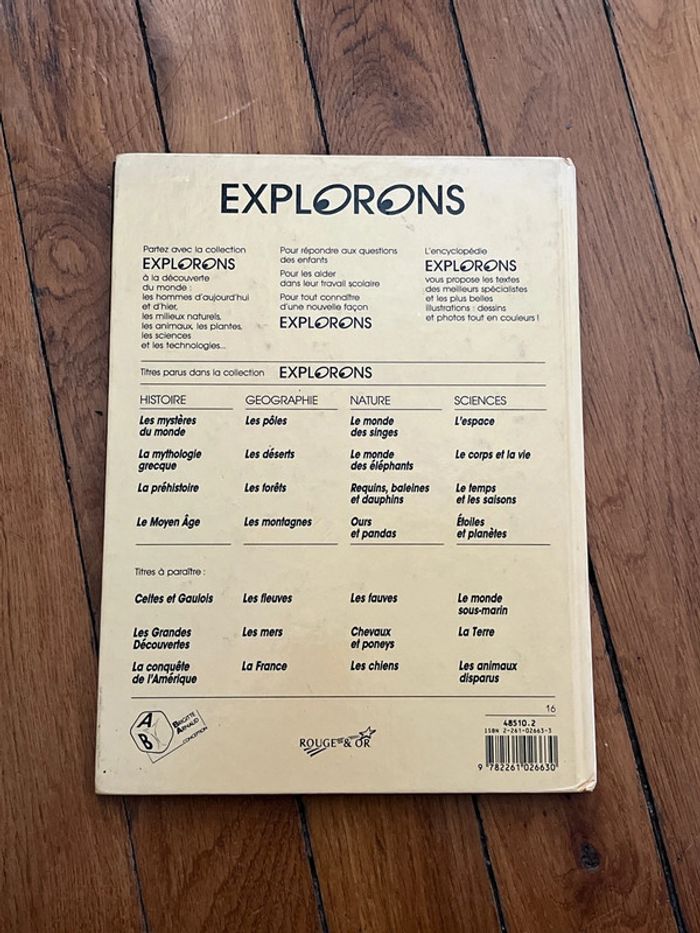 EXPLORONS
Partez avec la collection
EXPLORONS
à la découverte
du monde :
les hommes d'aujourd'hui
et d'hier,
les milieux naturels,
les animaux, les plantes,
les sciences
et les technologies...
Pour répondre aux questions
des enfants
Pour les aider
dans leur travail scolaire
Pour tout connaître
d'une nouvelle façon
EXPLORONS
L'encyclopédie
EXPLORONS
vous propose les textes
des meilleurs spécialistes
et les plus belles
illustrations : dessins
et photos tout en couleurs !
Titres parus dans la collection EXPLORONS
HISTOIRE
Les mystères
du monde
La mythologie
grecque
La préhistoire
Le Moyen Âge
GEOGRAPHIE
Les pôles
Les déserts
Les forêts
Les montagnes
NATURE
Le monde
des singes
Le monde
des éléphants
Requins, baleines
et dauphins
Ours
et pandas
SCIENCES
L'espace
Le corps et la vie
Le temps
et les saisons
Étoiles
et planètes
Titres à paraître :
Celtes et Gaulois
Les Grandes
Découvertes
La conquête
de l'Amérique
Les fleuves
Les mers
La France
Les fauves
Chevaux
et poneys
Les chiens
Le monde
sous-marin
La Terre
Les animaux
disparus
AB
BRIGITTE
ARNAUD
CONCEPTION
ROUGE & OR
16
48510.2
ISBN 2-261-02663-3
9 782261 026630